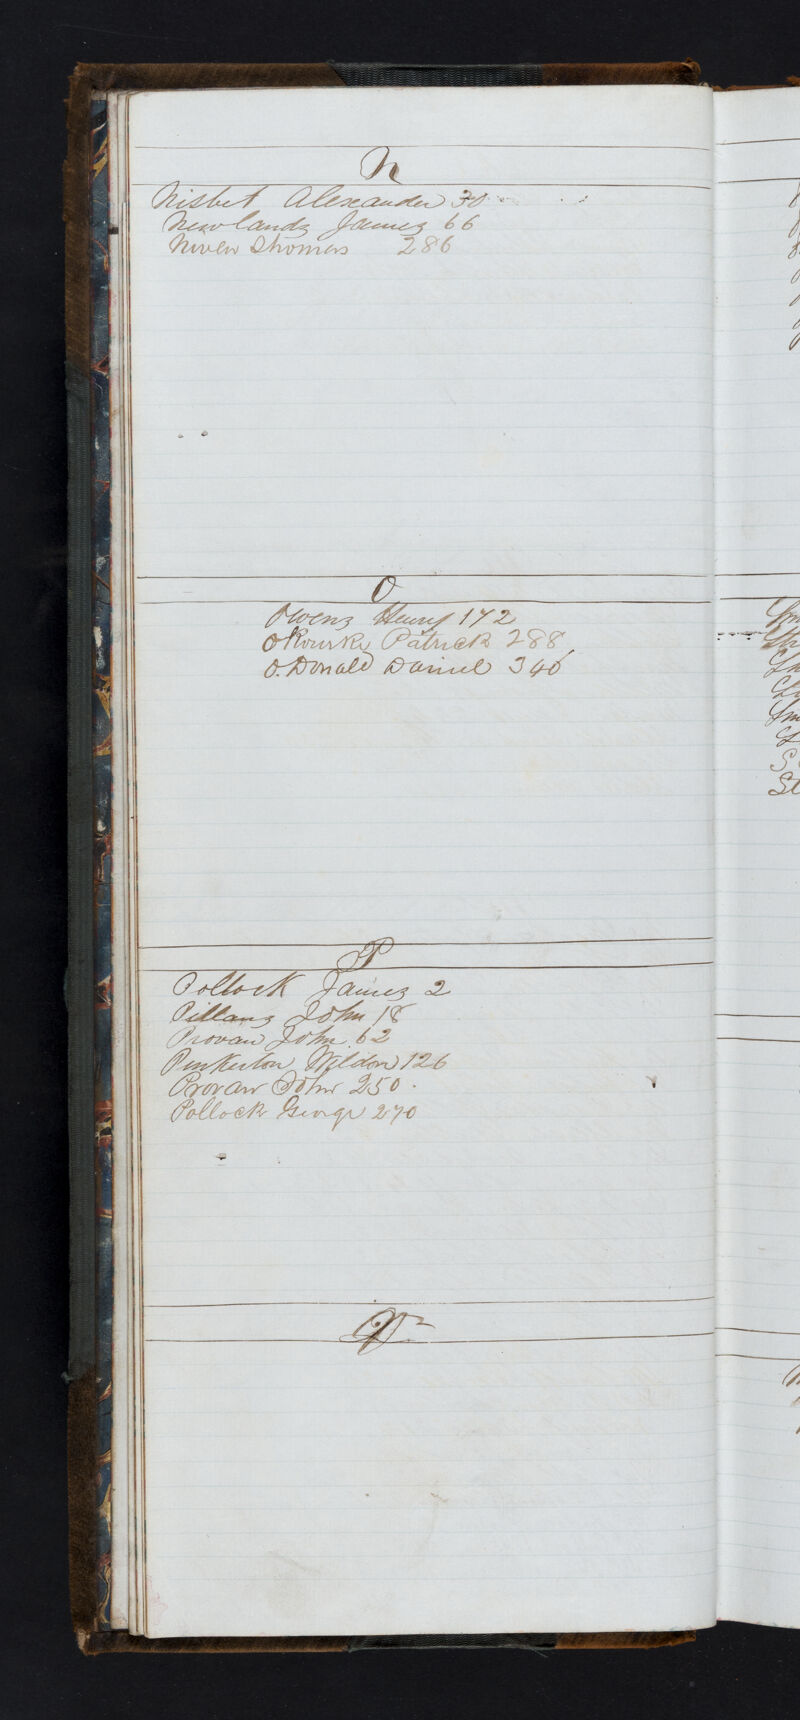 N
Nisbet Alexander 30
Newlands James 66
Niven Thomas 286
O
Owens Henry 172
O Rourke Patrick 288
O. Donald Daniel 340
P
Pollock James 2
Pillans John 18
Provan John 62
Pinkerton 126
Provan John 250.
Pollock George 270
Q